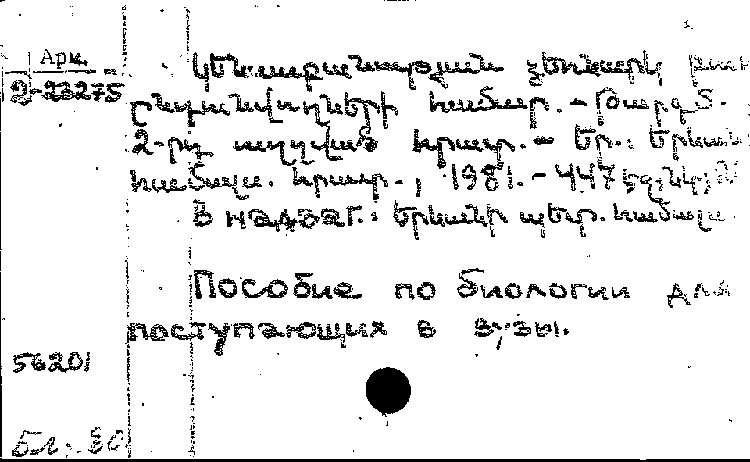 Арм.
2-23275
Կենսաբանության ձեռնարկ բուհ
ընդունվողների համար. – Ծարգ Տ.
2-րդ աղղված հրատ. – Եր.: Երևան
համալս. հրատ., 1981. – 447 էջ, նկ.; 21
В надзаг.: Երևանի պետ. համալս
Пособие по биологии для
поступающих в вузы.
56201